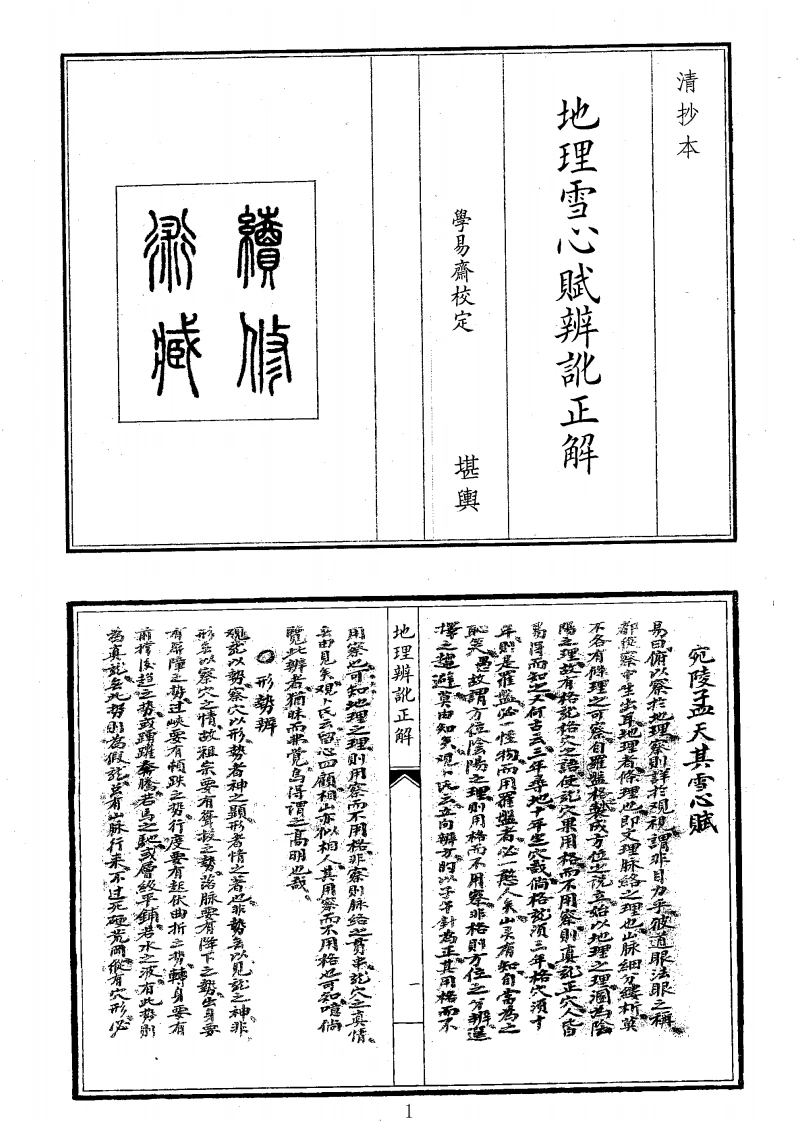 清抄本
地理雪心賦辨訛正解
學易齋校定
堪輿
續修
求臧
宛陵孟天其雪心賦
易曰俯以察於地理察則詳於觀視謂非目力乎彼道眼法眼之稱
都從察中生出耳地理者條理也即文理脈絡之理也山脈細分縷析莫
不各有條理之可察自羅盤格製成方位之說立始以地理之理溷為陰
陽之理故有格龍格穴之語使龍穴果用格而不用察則真龍正穴人皆
易得而知之何古云三年尋地十年生穴哉倘格龍須三年格穴須十
年則是羅盤必一怪物而用羅盤者必一憨人矣山灵有知自當為之
恥笑愚故謂方位陰陽之理則用格而不用察非格則方位之分辨選
擇之趨避莫由知矣觀卜氏云立向辨方的以子午針為正其用格而不
地理辨訛正解
一
用察也可知地理之理則用察而不用格非察則脈絡之貫串龍穴之真情
無由見矣观卜氏云留心四顧相山亦似相人其用察而不用格也可知噫倘
覽此辨者猶昧而弗覺烏得謂之高明也哉
形勢辨
觀龍以勢察穴以形勢者神之顯形者情之著也非勢無以見龍之神非
形無以察穴之情故祖宗要有聳拔之勢落脈要有降下之勢出身要
有屏障之勢过峽要有頓跌之勢行度要有起伏曲折之勢轉身要有
前撐後趕之勢或踴躍奔騰若馬之馳或層級平鋪若水之波有此勢則
為真龍無此勢則為假龍若有山脉行来不过死硬荒頑縱有穴形必
1